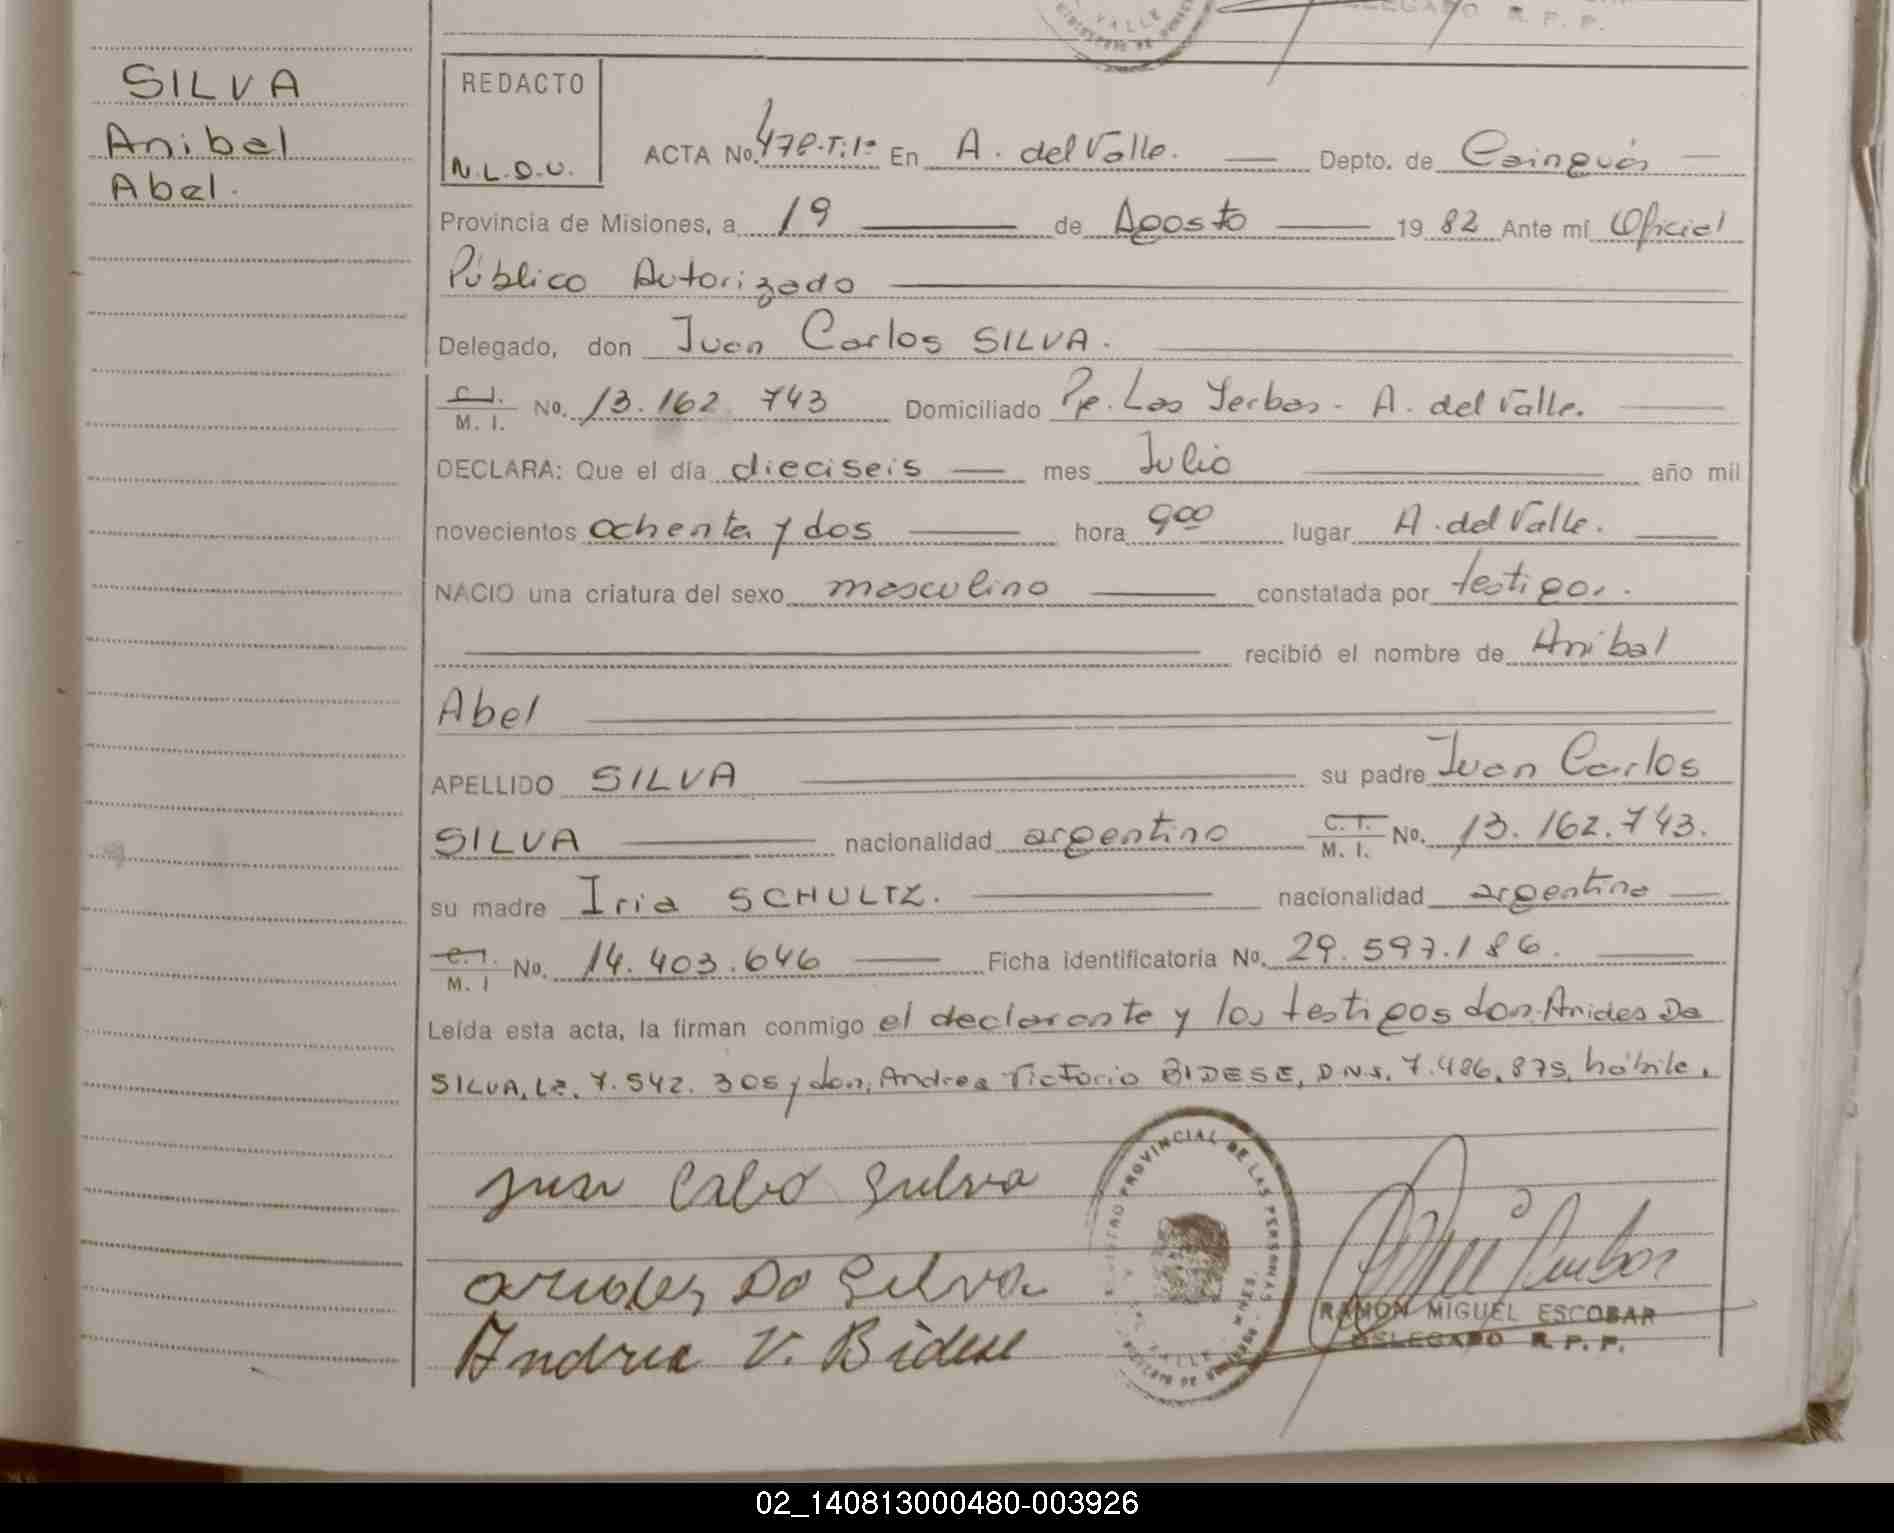 VALLE
DELEGADO R. P. P.
SILVA
Anibal
Abel.
REDACTO
N.L.D.U.
ACTA No. 478-T:1º En A. del Valle. Depto. de Cainguás
Provincia de Misiones, a 19 de Agosto 1982 Ante mí Oficial
Público Autorizado
Delegado, don Juan Carlos SILVA.
C. I. M. I. No. 13.162.743 Domiciliado Pje. Las Yerbas - A. del Valle.
DECLARA: Que el día dieciseis mes Julio año mil
novecientos ochenta y dos hora 900 lugar A. del Valle.
NACIO una criatura del sexo masculino constatada por testigos.
recibió el nombre de Anibal
Abel
APELLIDO SILVA su padre Juan Carlos
SILVA nacionalidad argentino C. I. M. I. No. 13.162.743.
su madre Iria SCHULTZ. nacionalidad argentina
C. I. M. I No. 14.403.646 Ficha identificatoria No. 29.597.186.
Leída esta acta, la firman conmigo el declarante y los testigos don: Arides Da
SILVA, LE. 7.542.305 y don, Andrea Victorio BIDESE, D.N.I. 7.486.875, hábiles.
Juan Carlos Silva
Arides Da Silva
Andrea V. Bidese
PROVINCIAL DE LAS PERSONAS
VALLE
RAMON MIGUEL ESCOBAR
DELEGADO R. P. P.
02_140813000480-003926